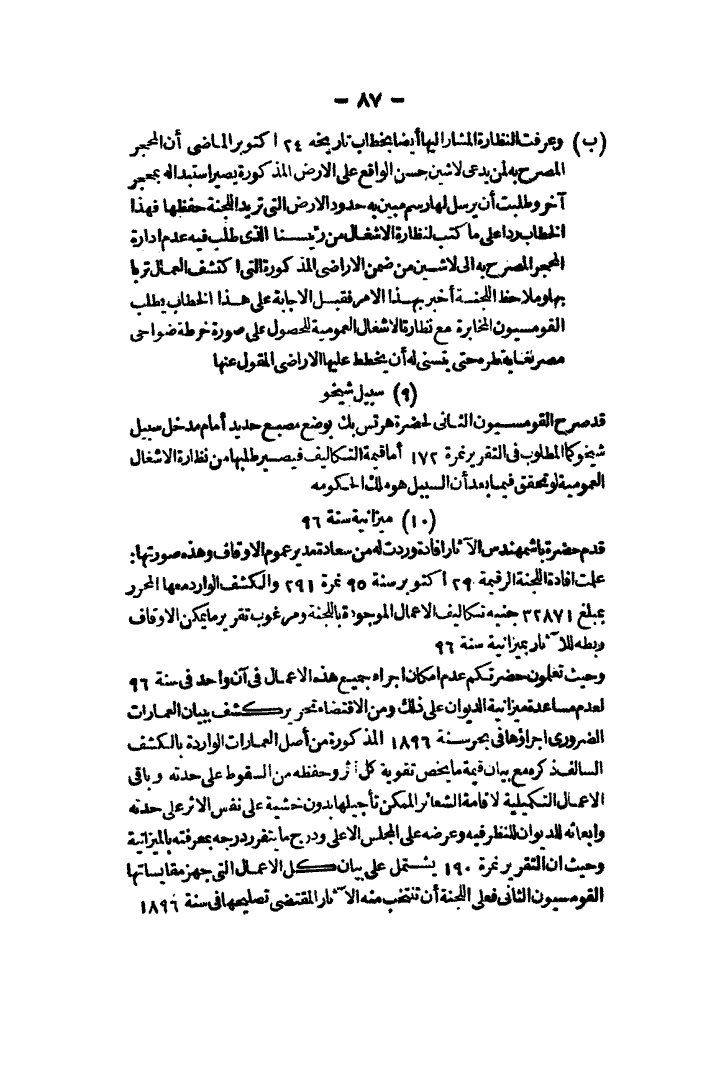 - ٨٧ -
(ب) وعرفت النظارة المشار اليها أيضا بخطاب تاريخه ٢٤ اكتوبر الماضى أن المحجر
المصرح به لمن يدعى لاشين حسن الواقع على الارض المذكورة يصير استبداله بمحجر
آخر وطلبت أن يرسل لها رسم مبين به حدود الارض التى تريد اللجنة حفظها فهذا
الخطاب ردا على ما كتب لنظارة الاشغال من رئيسنا الذى طلب فيه عدم ادارة
المحجر المصرح به الى لاشين من ضمن الاراضى المذكورة التى اكتشف العمال تربا
بها وملاحظ اللجنة أخبر بهذا الامر فقبل الاجابة على هذا الخطاب يطلب
القومسيون المخابرة مع نظارة الاشغال العمومية للحصول على صورة خرطة ضواحى
مصر لغاية طره حتى يتسنى له أن يخطط عليها الاراضى المقول عنها
(٩) سبيل شيخو
قد صرح القومسيون الثانى لحضرة هرتس بك بوضع مصبع حديد أمام مدخل سبيل
شيخو كما المطلوب فى التقرير نمرة ١٧٢ أما قيمة التكاليف فيصير طلبها من نظارة الاشغال
العمومية لو تحقق فيما بعد أن السبيل هو ملك الحكومه
(١٠) ميزانية سنة ٩٦
قدم حضرة باشمهندس الآثار افادة وردت له من سعادة مدير عموم الاوقاف وهذه صورتها:
علمت افادة اللجنة الرقيمة ٢٩ اكتوبر سنة ٩٥ نمرة ٢٩١ والكشف الوارد معها المحرر
بمبلغ ٣٢٨٧١ جنيه تكاليف الاعمال الموجودة باللجنة ومرغوب تقرير ما يمكن الاوقاف
ربطه للآثار بميزانية سنة ٩٦
وحيث تعلمون حضرتكم عدم امكان اجراء جميع هذه الاعمال فى آن واحد فى سنة ٩٦
لعدم مساعدة ميزانية الديوان على ذلك ومن الاقتضاء تحرير كشف ببيان العمارات
الضرورى اجراؤها فى بحر سنة ١٨٩٦ المذكورة من أصل العمارات الواردة بالكشف
السالف ذكره مع بيان قيمة ما يخص تقوية كل أثر وحفظه من السقوط على حدته وباقى
الاعمال التكميلية لاقامة الشعائر الممكن تأجيلها بدون خشية على نفس الاثر على حدته
وابعاثه للديوان للنظر فيه وعرضه على المجلس الاعلى ودرج ما يتقرر درجه بمعرفته بالميزانية
وحيث ان التقرير نمرة ١٩٠ يشتمل على بيان كل الاعمال التى جهز مقايساتها
القومسيون الثانى فعلى اللجنة أن تنتخب منه الآثار المقتضى تصليحها فى سنة ١٨٩٦